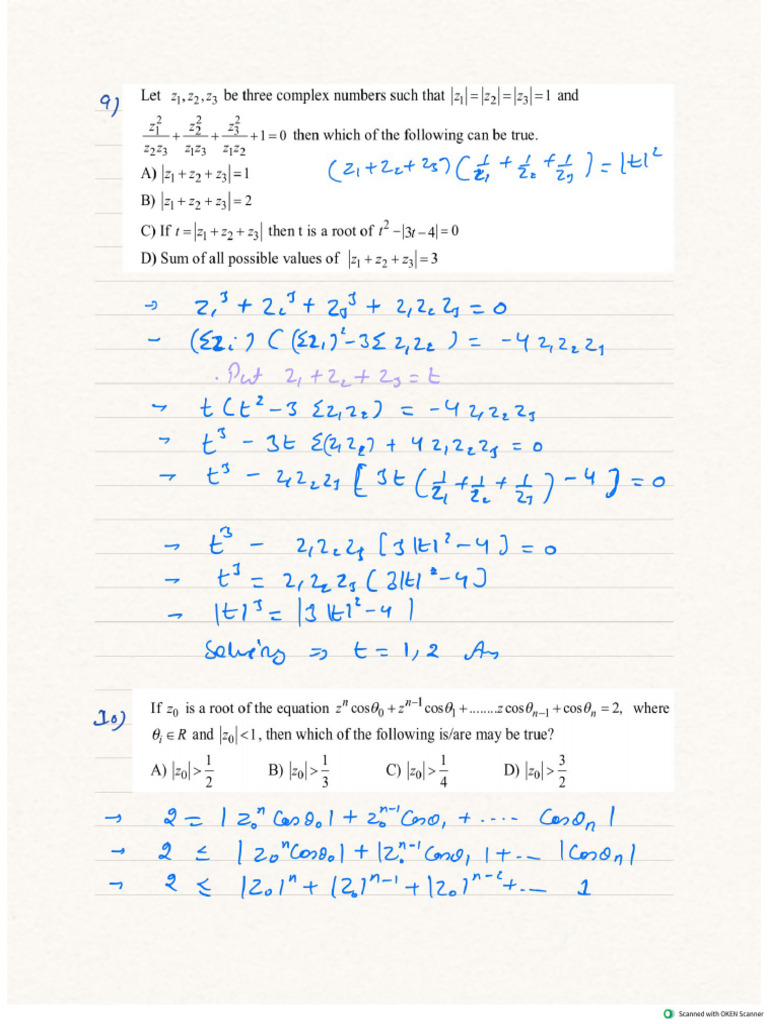 9)
Let z₁, z₂, z₃ be three complex numbers such that |z₁| = |z₂| = |z₃| = 1 and
z₁²/z₂z₃ + z₂²/z₁z₃ + z₃²/z₁z₂ + 1 = 0 then which of the following can be true.
(z₁ + z₂ + z₃)(1/z₁ + 1/z₂ + 1/z₃) = |t|²
A) |z₁ + z₂ + z₃| = 1
B) |z₁ + z₂ + z₃| = 2
C) If t = |z₁ + z₂ + z₃| then t is a root of t² − |3t − 4| = 0
D) Sum of all possible values of |z₁ + z₂ + z₃| = 3
→ z₁³ + z₂³ + z₃³ + z₁z₂z₃ = 0
− (Σzᵢ)((Σz₁)² − 3Σz₁z₂) = −4z₁z₂z₃
. Put z₁ + z₂ + z₃ = t
→ t(t² − 3Σz₁z₂) = −4z₁z₂z₃
→ t³ − 3tΣ(z₁z₂) + 4z₁z₂z₃ = 0
→ t³ − z₁z₂z₃[3t(1/z₁ + 1/z₂ + 1/z₃) − 4] = 0
→ t³ − z₁z₂z₃[3|t|² − 4] = 0
→ t³ = z₁z₂z₃(3|t|² − 4]
→ |t|³ = |3|t|² − 4|
Solving ⇒ t = 1, 2 An
10)
If z₀ is a root of the equation zⁿ cosθ₀ + zⁿ⁻¹ cosθ₁ + ........z cosθₙ₋₁ + cosθₙ = 2, where
θᵢ ∈ R and |z₀| < 1, then which of the following is/are may be true?
A) |z₀| > 1/2 B) |z₀| > 1/3 C) |z₀| > 1/4 D) |z₀| > 3/2
→ 2 = |z₀ⁿ Cosθ₀| + z₀ⁿ⁻¹Cosθ₁ + .... Cosθₙ|
→ 2 ≤ |z₀ⁿCosθ₀| + |z₀ⁿ⁻¹ Cosθ₁| + .. |Cosθₙ|
→ 2 ≤ |z₀|ⁿ + |z₀|ⁿ⁻¹ + |z₀|ⁿ⁻² + .. 1
Scanned with OKEN Scanner